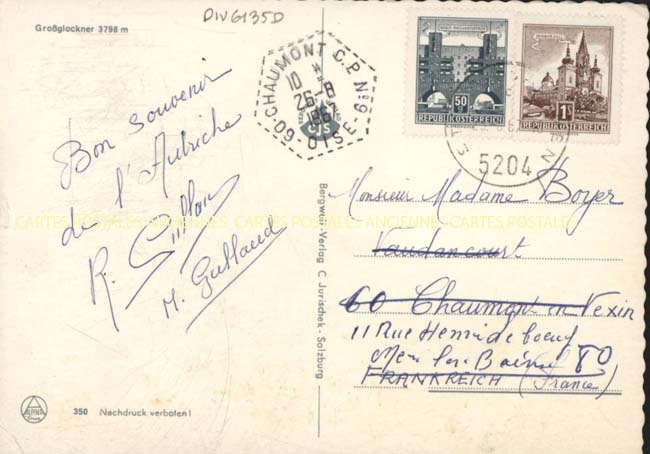 DIVG135D
Großglockner 3798 m
CHAUMONT C.P. Nº 9
10 *
26-8
1967
60-OISE
50 g
REPUBLIK ÖSTERREICH
1 S
REPUBLIK ÖSTERREICH
5204
Bon souvenir
de l'Autriche
R.
M.
CARTES POSTALES ANCIENNES CARTES POSTALES
Bergwelt-Verlag C. Jurischek - Salzburg
CJS
Monsieur Madame Boyer
Vaudancourt
60 Chaumont en Vexin
11 Rue Henri de boeuf
60
FRANKREICH (France)
ALPINA
Druck
350 Nachdruck verboten!